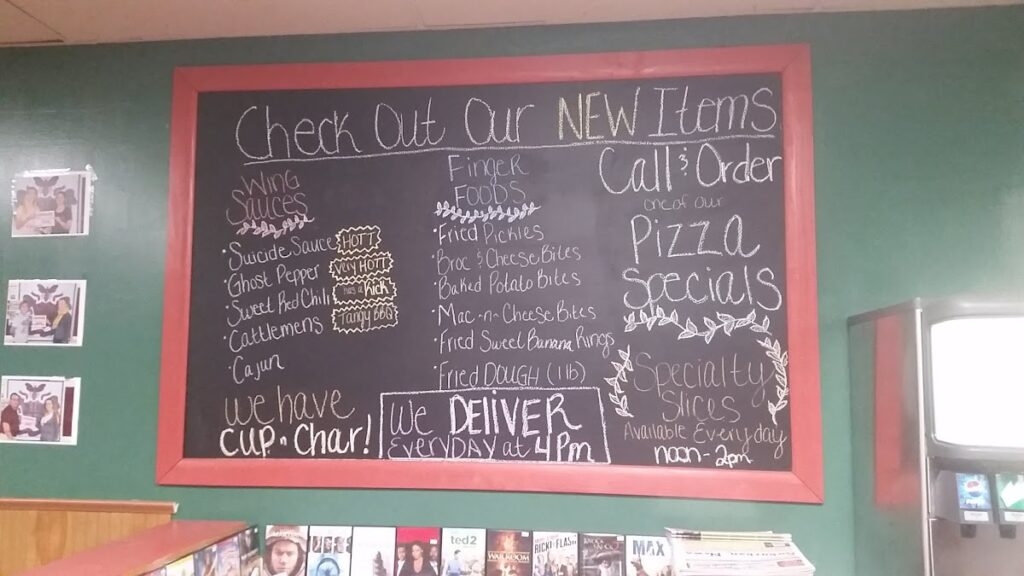 Check Out Our NEW Items
Wing
Sauces
• Suicide Sauce HOTT
• Ghost Pepper Very HOTT
• Sweet Red Chili has a kick
• Cattlemens Tangy BBQ
Cajun
we have
cup n Char!
Finger
Foods
• Fried Pickles
• Broc & Cheese Bites
Baked Potato Bites
• Mac-n-Cheese Bites
• Fried Sweet Banana Rings
• Fried DOUGH (1 lb)
We DELIVER
EVERYDAY at 4pm
Call & Order
one of our
Pizza
Specials
Specialty
Slices
Available Everyday
noon-2pm
pepsi
ted2
WAR ROOM
RICKI AND THE FLASH
MAX